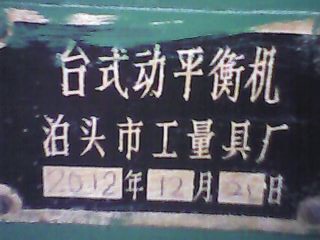 台式动平衡机
泊头市工量具厂
2012年12月21日